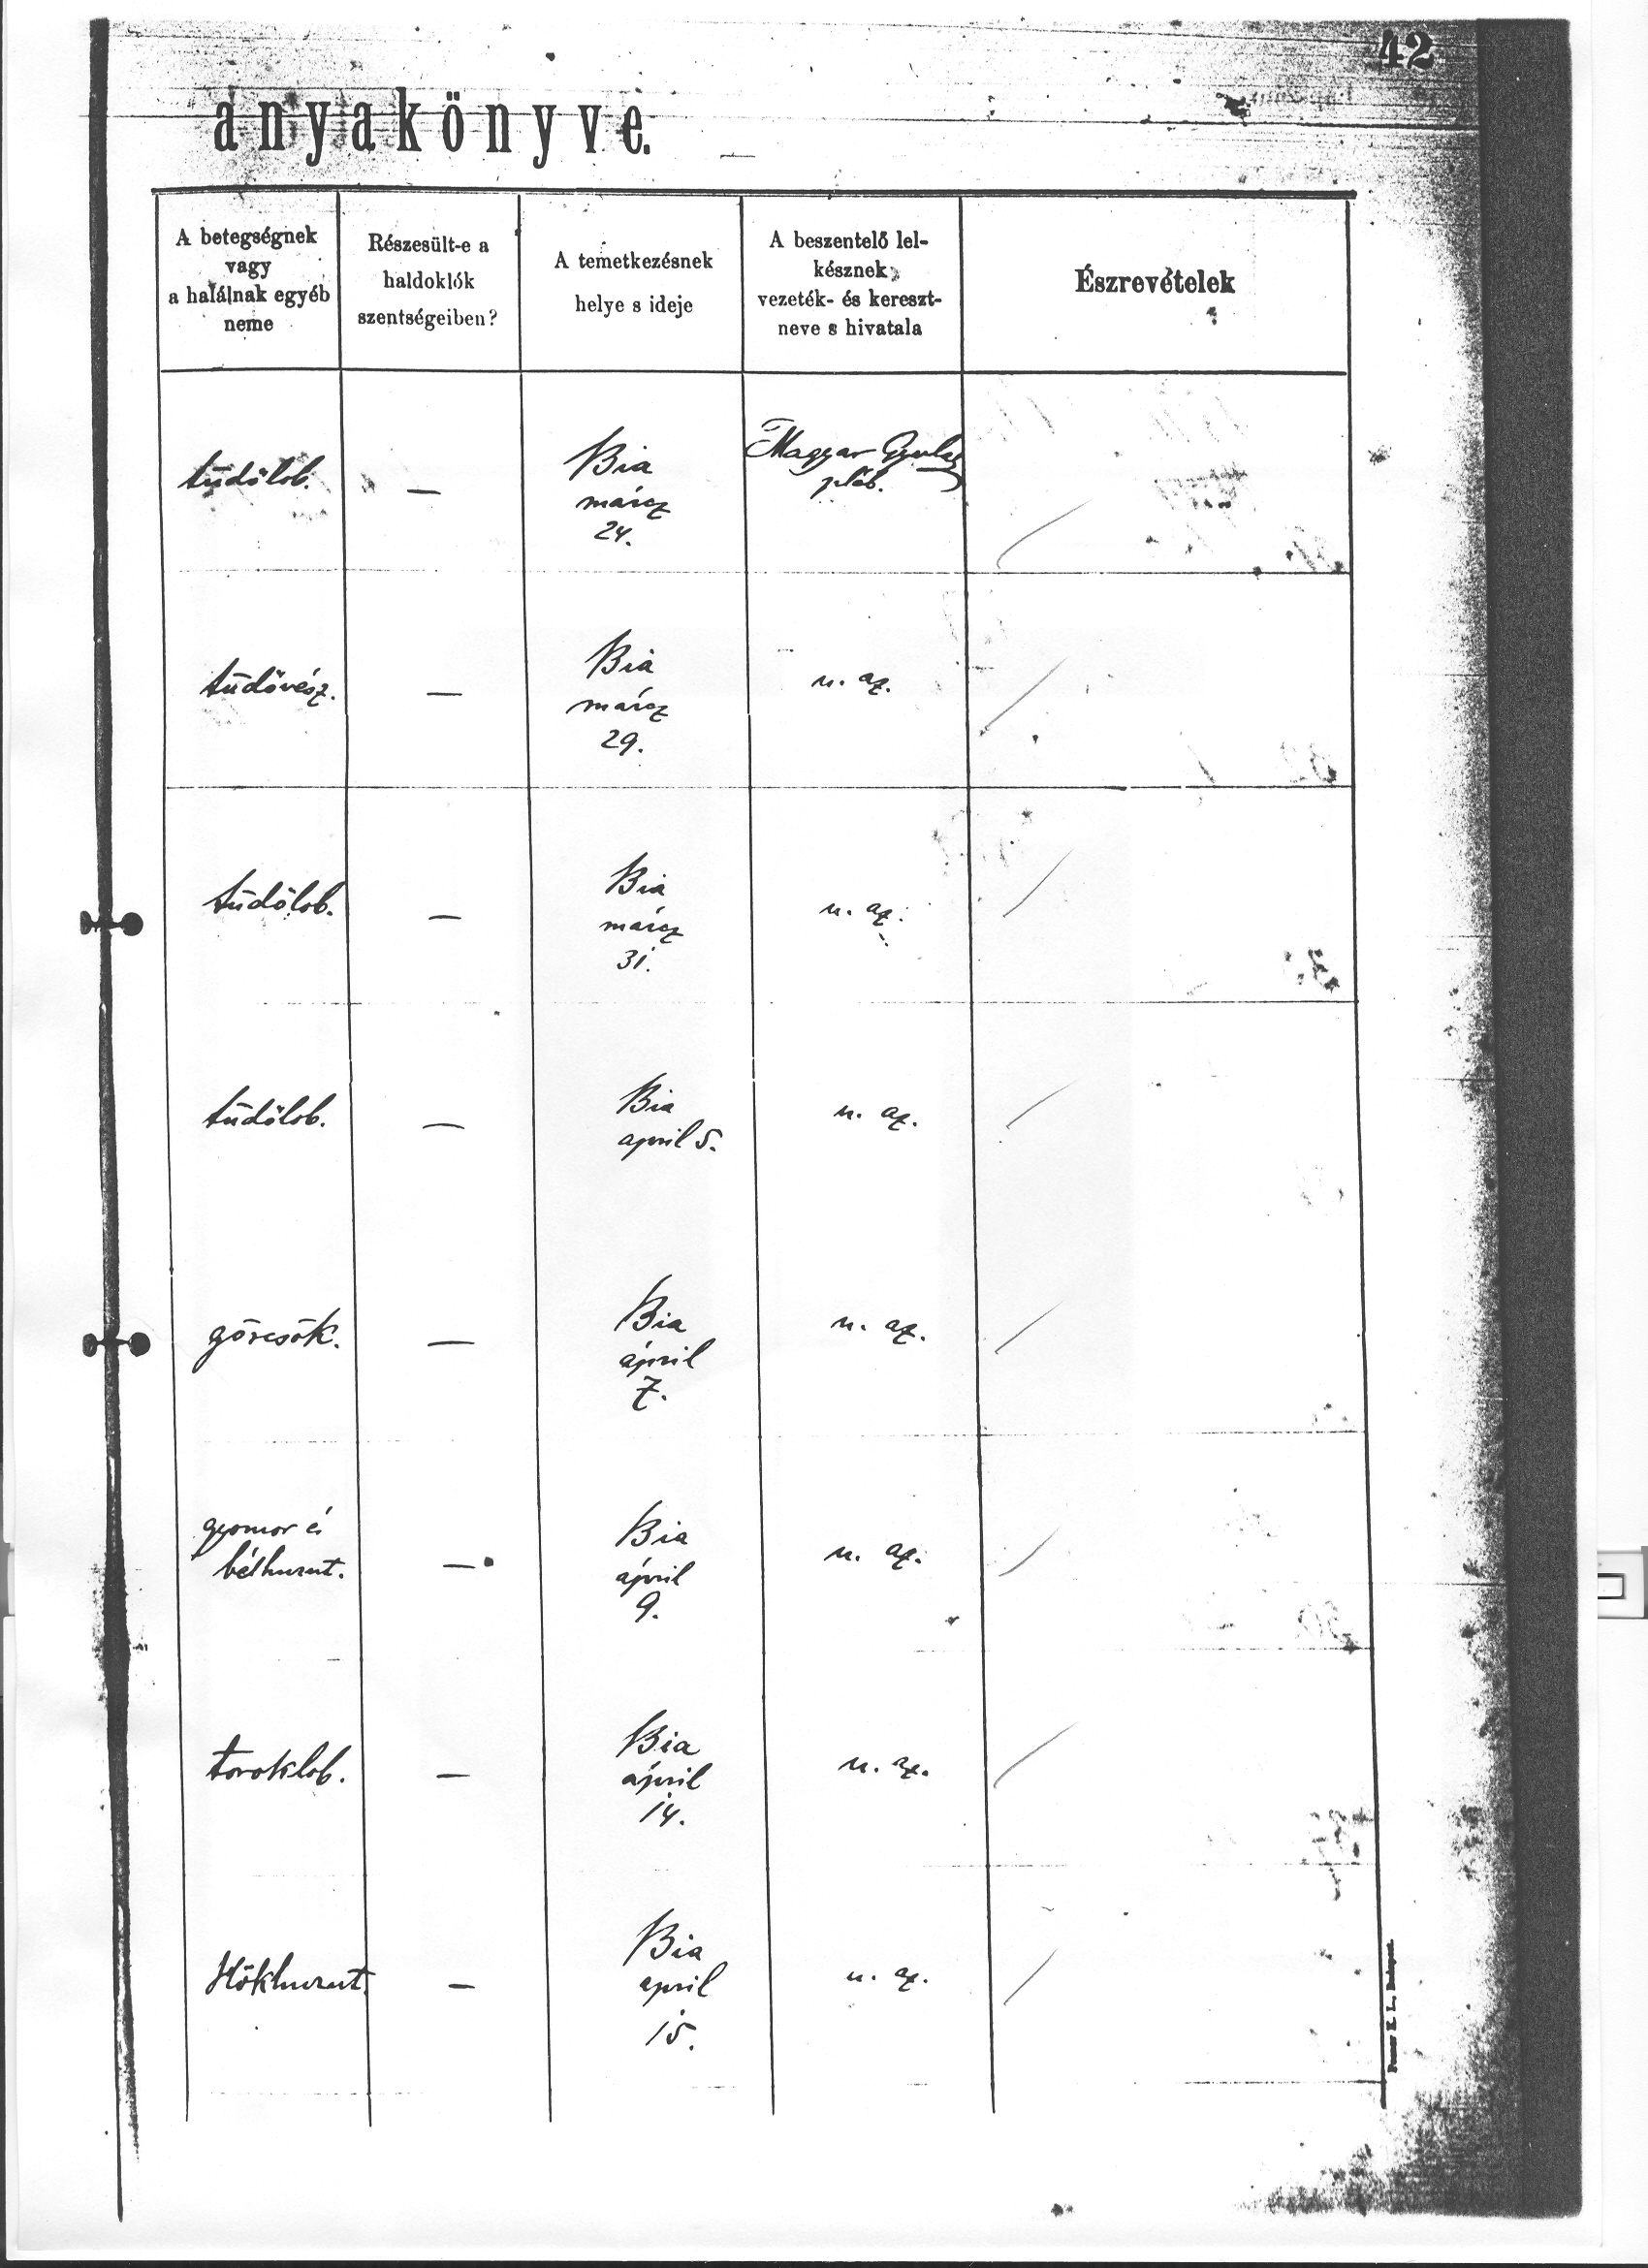 42
anyakönyve.
A betegségnek
vagy
a halálnak egyéb
neme
Részesült-e a
haldoklók
szentségeiben?
A temetkezésnek
helye s ideje
A beszentelő lel-
késznek
vezeték- és kereszt-
neve s hivatala
Észrevételek
tüdőlob.
—
Bia
márcz
24.
Magyar Gyula
pléb.
tüdővész.
—
Bia
márcz
29.
u. az.
tüdőlob.
—
Bia
márcz
31.
u. az.
tüdőlob.
—
Bia
april 5.
u. az.
görcsök.
—
Bia
ápril
7.
u. az.
gyomor és
bélhurut.
—
Bia
ápril
9.
u. az.
toroklob.
—
Bia
ápril
14.
u. az.
Hökhurut.
—
Bia
april
15.
u. az.
E. L., Budapest